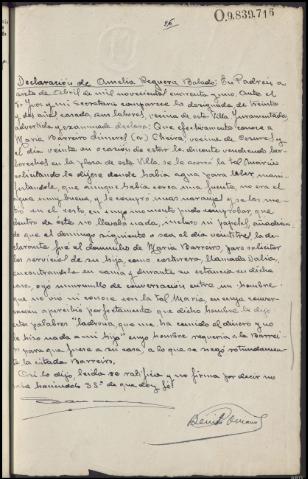 26
0.9.839.716
Declaración de Amelia Sequera Balado: En Padrón a
siete de Abril de mil novecientos cuarenta y uno. Ante el
Sr Juez y mi Secretario comparece la designada de treinta
y dos años, casada, sus labores, vecina de esta Villa Juramentada
advertida y examinada declara: Que efectivamente conoce a
Maria Barreiro vecina de
el dia veinte en ocasion de estar la dicente vendiendo
berberechos en la plaza de esta Villa se le acercó la tal Maria
solicitando la dijese donde habia agua para beber mani-
festandole, que aunque habia cerca una fuente no era el
agua muy buena, y le compro unas naranjas y se las me-
tio en el cesto en cuyo momento pudo comprobar que
dentro de este no llevaba nada, incluso ni papeles, añadien-
do que el domingo siguiente o sea el dia veintitres la de-
clarante fue al domicilio de Maria Barreiro, para solicitar
los servicios de su hija como costurera, llamada Dalia,
encontrandola en cama y durante su estancia en dicha
casa, oyo un murmullo de conversación entre un hombre
que no vio ni conoce con la tal Maria, en cuya conver-
sacion apercibio perfectamente que dicho hombre le dijo
estas palabras "ladrona que me ha comido el dinero y no
le hizo nada a mi hija" cuyo hombre requeria a la Barrei-
ro para que fuese a su casa, a lo que se negó rotundamen-
te la citada Barreiro.
Asi lo dijo, leida se ratifica y no firma por decir no
sabe haciendolo SSª de que doy fé.